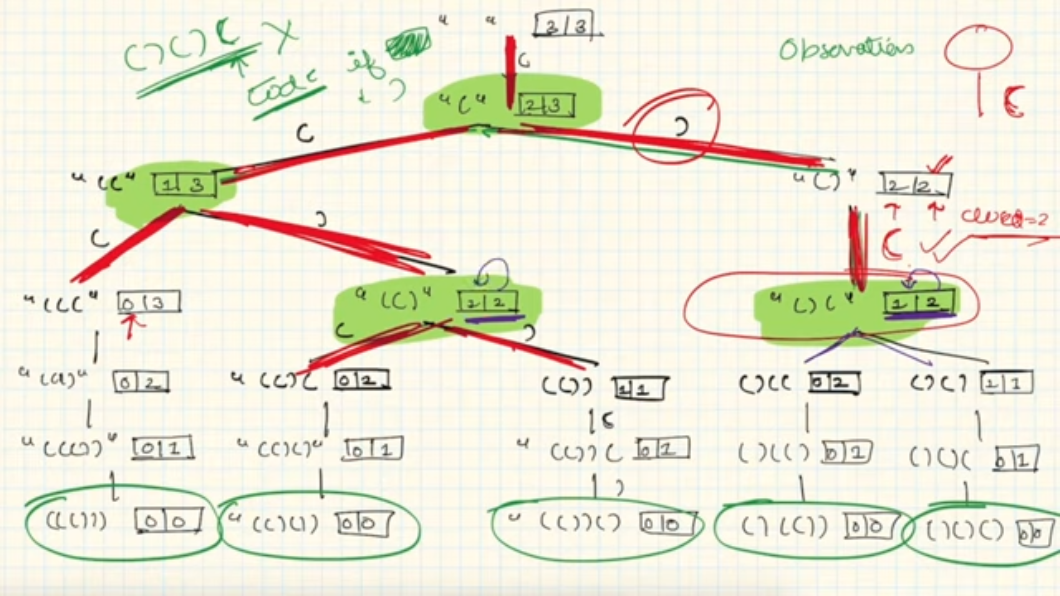 " " 3|3
( ) ( ) ( X
Code if ↓ )
Observation
(
(
"(" 2|3
(
)
"((" 1|3
"()" 2|2
(
)
( closed=2
"(((" 0|3
"(()" 1|2
"()(" 1|2
(
)
"((()" 0|2
"(()( 0|2
(()) 1|1
()(( 0|2
()() 1|1
(
"((())" 0|1
"(()()" 0|1
"(())( 0|1
()(() 0|1
()()( 0|1
)
((())) 0|0
"(()()) 0|0
"(())() 0|0
()(()) 0|0
()()() 0|0